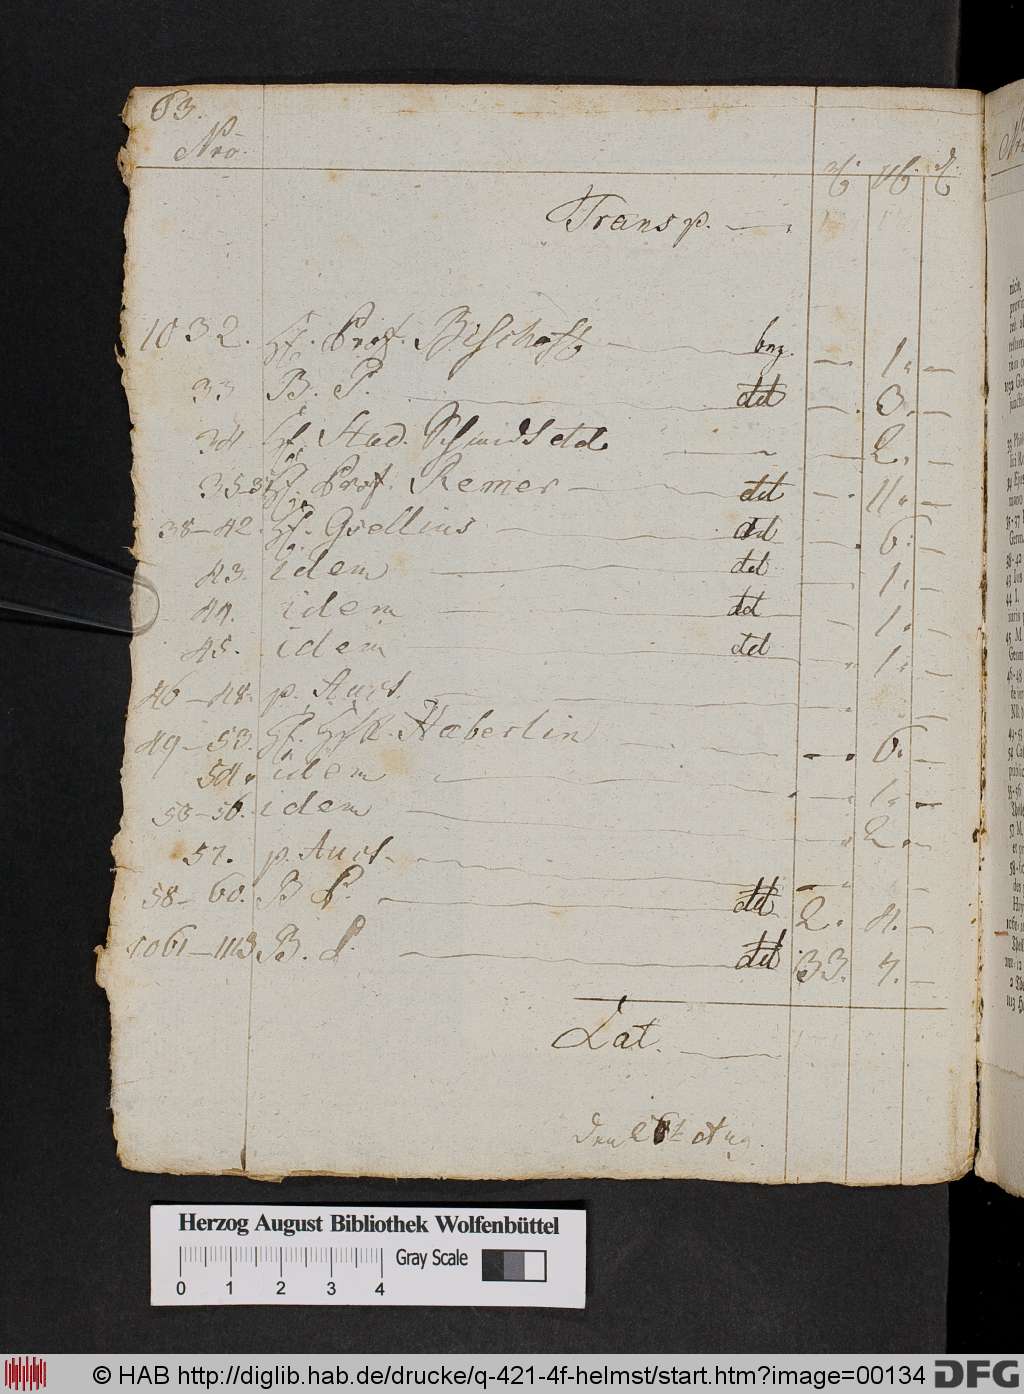 63.
Nro.
Transp.
1032. H. Prof. Bischoff bez. 1.
33 B. P. ddt 3.
34 H. Stud. Schmidt ddt 2.
35 37 H. Prof. Remer ddt 11.
38-42. H. Gsellius ddt 6.
43. idem ddt 1.
44. idem ddt 1.
45. idem ddt 1.
46-48. p. Auct.
49-53. H. Hfr. Häberlin 6.
54. idem 1.
55-56. idem 2.
57. p. Auct.
58-60. B P. ddt 2. 4.
1061-1113 B. P. ddt 33. 7.
Lat.
den 26t Aug.
Herzog August Bibliothek Wolfenbüttel
Gray Scale
0 1 2 3 4
© HAB http://diglib.hab.de/drucke/q-421-4f-helmst/start.htm?image=00134
DFG